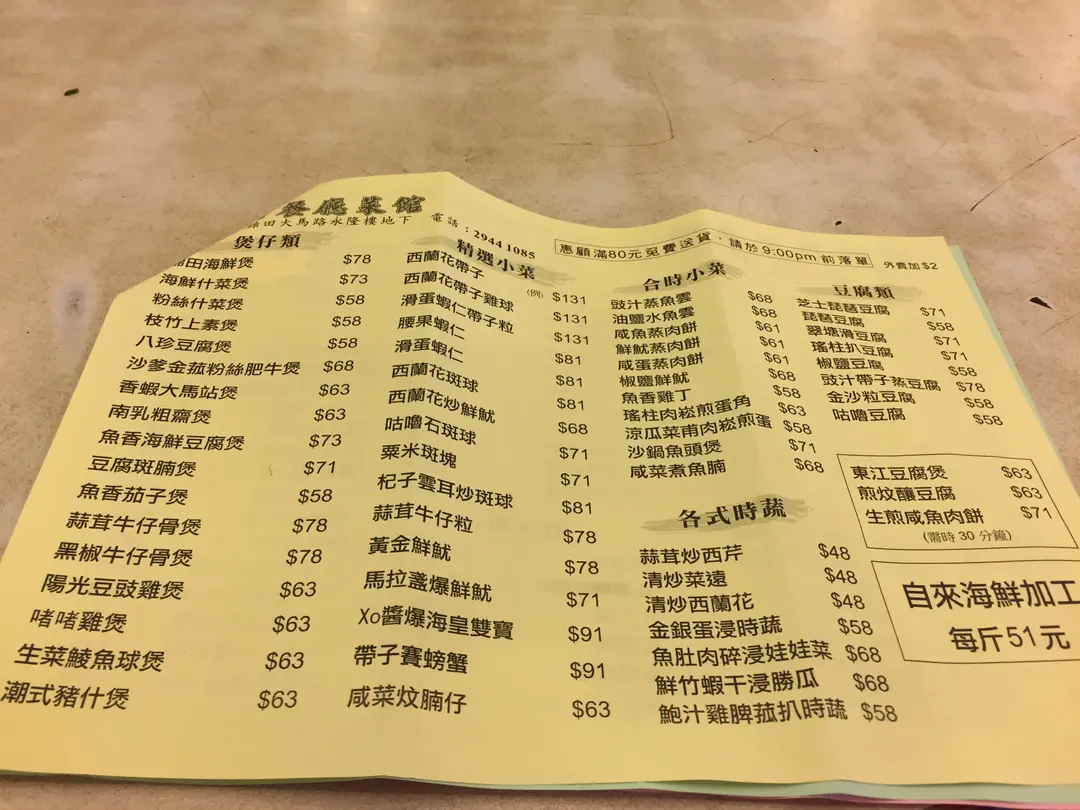 餐廳菜館
田大馬路永隆樓地下
電話：2944 1085
惠顧滿80元至費送貨，請於9:00pm前落單
外賣加$2
煲仔類
田海鮮煲 $78
海鮮什菜煲 $73
粉絲什菜煲 $58
枝竹上素煲 $58
八珍豆腐煲 $58
沙爹金菇粉絲肥牛煲 $68
香蝦大馬站煲 $63
南乳粗齋煲 $63
魚香海鮮豆腐煲 $73
豆腐斑腩煲 $71
魚香茄子煲 $58
蒜茸牛仔骨煲 $78
黑椒牛仔骨煲 $78
陽光豆豉雞煲 $63
啫啫雞煲 $63
生菜鯪魚球煲 $63
潮式豬什煲 $63
精選小菜
(例)
西蘭花帶子 $131
西蘭花帶子雞球 $131
滑蛋蝦仁帶子粒 $131
腰果蝦仁 $81
滑蛋蝦仁 $81
西蘭花斑球 $81
西蘭花炒鮮魷 $68
咕嚕石斑球 $71
粟米斑塊 $71
杞子雲耳炒斑球 $81
蒜茸牛仔粒 $78
黃金鮮魷 $78
馬拉盞爆鮮魷 $71
Xo醬爆海皇雙寶 $91
帶子賽螃蟹 $91
咸菜炆腩仔 $63
合時小菜
豉汁蒸魚雲 $68
油鹽水魚雲 $68
咸魚蒸肉餅 $61
鮮魷蒸肉餅 $61
咸蛋蒸肉餅 $61
椒鹽鮮魷 $68
魚香雞丁 $58
瑤柱肉崧煎蛋角 $63
涼瓜菜甫肉崧煎蛋 $58
沙鍋魚頭煲 $71
咸菜煮魚腩 $68
各式時蔬
蒜茸炒西芹 $48
清炒菜遠 $48
清炒西蘭花 $48
金銀蛋浸時蔬 $58
魚肚肉碎浸娃娃菜 $68
鮮竹蝦干浸勝瓜 $68
鮑汁雞脾菇扒時蔬 $58
豆腐類
芝士琵琶豆腐 $71
琵琶豆腐 $58
翠塘滑豆腐 $71
瑤柱扒豆腐 $71
椒鹽豆腐 $58
豉汁帶子蒸豆腐 $78
金沙粒豆腐 $58
咕嚕豆腐 $58
東江豆腐煲 $63
煎炆釀豆腐 $63
生煎咸魚肉餅 $71
(需時30分鐘)
自來海鮮加工
每斤51元